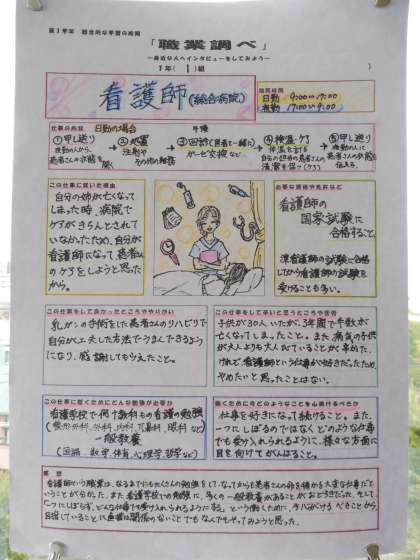 第1学年 総合的な学習の時間
「職業調べ」
～身近な人へインタビューをしてみよう～
1年( 1 )組
看護師(総合病院)
勤務時間
日勤 9:00～17:00
夜勤 17:00～9:00
仕事の内容 日勤の場合 午後
①申し送り → ②処置 → ③回診(患者と一緒に) → ④検温・ケア → ⑤申し送り
夜勤の人から
患者さんの状態を
聞く
注射や
その他の処置
ガーゼ交換など
体温を計る
自分の担当の患者さんへ
清潔を保つ(ケア)
夜勤の人に
患者さんの状態を
伝える。
この仕事に就いた理由
自分の姉が亡くなって
しまった時、病院で
ケアがきちんとされて
いなかったため、自分が
看護師になって患者さん
のケアをしようと思った
から。
必要な資格や免許など
看護師の
国家試験に
合格すること。
準看護師の試験に合格
してから看護師の試験を
受けることも多い。
この仕事をして良かったところややりがい
乳がんの手術をした患者さんのリハビリで
自分が工夫した方法でうまくできるよう
になり、感謝してもらえたこと。
この仕事をして辛いと思うところや苦労
子供が30人いたが、3年間で半数が
亡くなってしまったこと。また、病気の子供
が大人よりも大人びていることが辛かった。
けれど、看護師という仕事が好きだったため
やめたいと思ったことはない。
この仕事に就くためにどんな勉強が必要か
看護学校で何十教科もの看護の勉強
(整形外科、外科、内科、耳鼻科、眼科など)
一般教養
(国語、数学、体育、心理学、哲学など)
働くために今どのようなことを心掛けるべきか
仕事を好きになって続けること。また、
一つにしぼるのではなくどのような仕事
でも受け入れられるように、様々な方面に
目を向けてがんばること。
感想
看護師という職業は、なるまでにも大変な勉強をして、なってからも患者さんの命を預かる大変な仕事だと
いうことが分かった。また看護学校での勉強に、多くの一般教養があることがおどろきだった。そして
「一つにしぼらず、どんな仕事でも受け入れられるように」
目指していることに直接は関係のないことでもなんでもやってみようと思った。